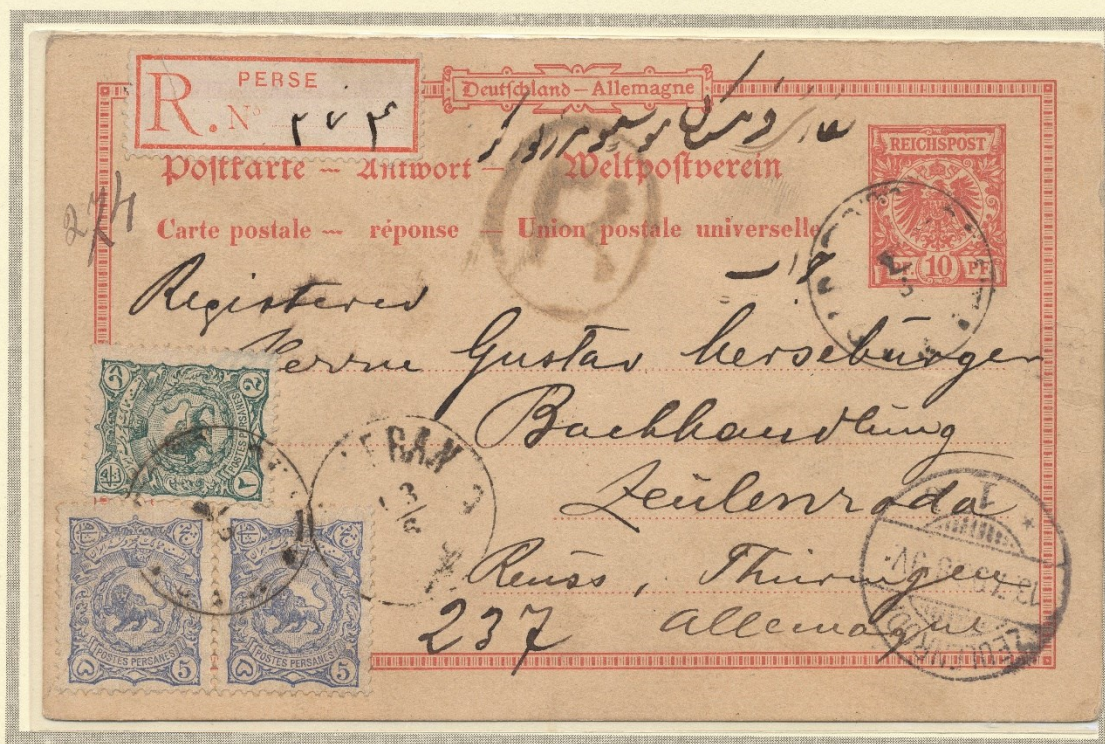 PERSE
R. Nº ۲۷۴
Deutschland – Allemagne
Postkarte – Antwort – Weltpostverein
Carte postale – réponse – Union postale universelle
REICHSPOST
PF. 10 PF.
274
Registered
Herrn Gustav Merseburger
Buchhandlung
Zeulenroda
Reuss, Thüringen
Allemagne
237
2
POSTES PERSANES
۲
TEHERAN
3/6
POSTES PERSANES
۵ 5
POSTES PERSANES
۵ 5
ZEULENRODA
R